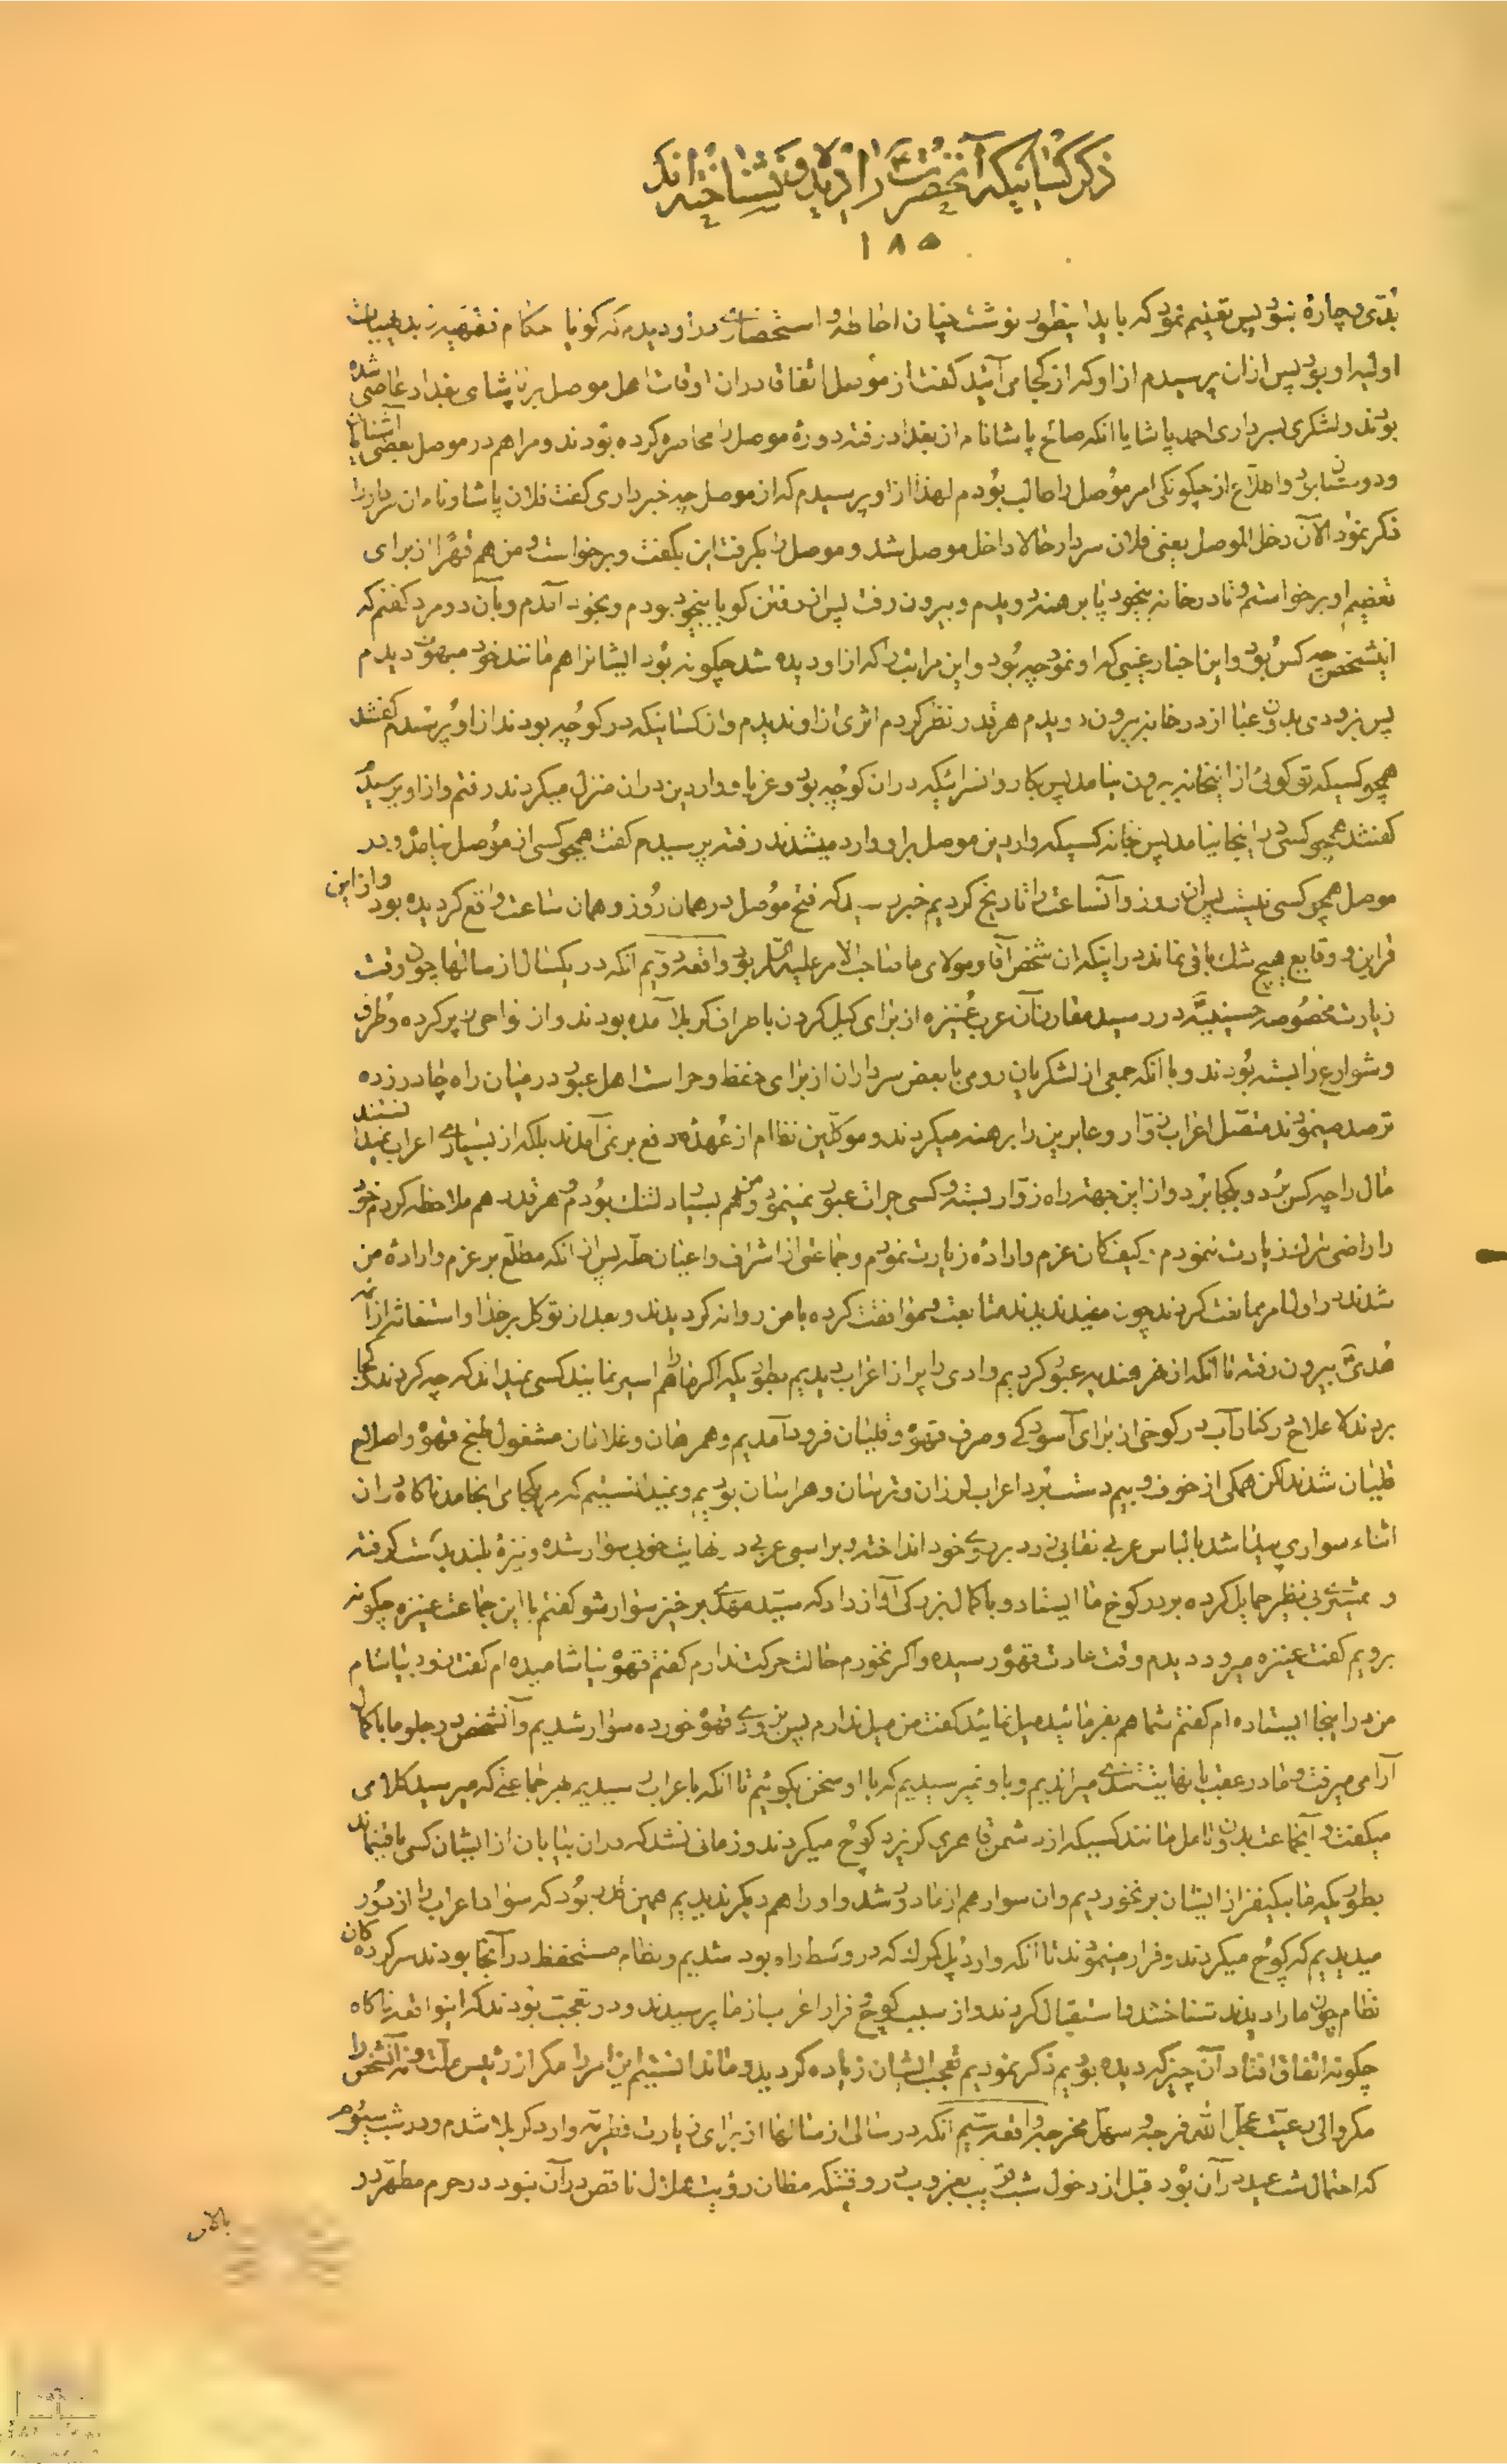 ذکر کسانیکه آنحضرت را دیده و نشناخته اند
۱۸۵
بدی و چارۀ نبود پس تفهیم نمود که باید اینطور نوشت چنان احاطه و استحضاری در او دیدم که گویا احکام فقهیه از بدیهیات
اولیه او بود پس از ان پرسیدم از او که از کجا می آئید گفت از موصل اتفاقا در ان اوقات اهل موصل بر پاشای بغداد عاصی شده
بودند و لشکری بسرداری احمد پاشا یا انکه صالح پاشا نام از بغداد رفته دورۀ موصل را محاصره کرده بودند و مرا هم در موصل بعضی آشنایان
و دوستان بود و اطلاع از چگونگی امر موصل را طالب بودم لهذا از او پرسیدم که از موصل چه خبر داری گفت فلان پاشا و نام ان سردار را
ذکر نمود الآن دخل الموصل یعنی فلان سردار حالا داخل موصل شد و موصل را بگرفت این بگفت و برخواست و من هم قهرا از برای
تعظیم او برخواستم و تا در خانه بیخود پا برهنه دویدم و بیرون رفت پس از رفتن گویا بیخود بودم و بخود آمدم و بآن دو مرد گفتم که
اینشخص چه کس بود و این اخبار غیبی که او نمود چه بود و این مراتب را که از او دیده شد چگونه بود ایشانرا هم مانند خود مبهوت دیدم
پس بزودی بدون عبا از در خانه بیرون دویدم هر قدر نظر کردم اثری از او ندیدم و ان کسانیکه در کوچه بودند از او پرسیدم گفتند
همچو کسیکه تو گوئی از اینخانه بیرون نیامد پس بکاروانسرائیکه در ان کوچه بود و غربا و واردین در ان منزل میکردند رفتم و از او پرسیدم
گفتند همچو کسی در اینجا نیامد پس خانه کسیکه واردین موصل بر او وارد میشدند رفته پرسیدم گفت همچو کسی از موصل نیامد و در
موصل همچو کسی نیست پس ان روز و آنساعت را تاریخ کردیم خبر رسید که فتح موصل در همان روز و همان ساعت واقع گردیده بود و از این
قراین و وقایع هیچ شک باقی نماند در اینکه ان شخص آقا و مولای ما صاحب الامر علیه السلام بود واقعه دویم آنکه در یکسال از سالها چون وقت
زیارت مخصوصه حسینیه در رسید مقارن آن عرب عنیزه از برای کیل کردن باطراف کربلا آمده بودند و ان نواحی را پر کرده و طرق
و شوارع را بسته بودند و با آنکه جمعی از لشکریان رومی با بعض سرداران از برای حفظ و حراست اهل عبور در میان راه چادر زده
ترصد مینمودند متصل اعراب زوار و عابرین را برهنه میکردند و موکلین نظام از عهده دفع بر نمی آمدند بلکه از بسیاری اعراب نمیدانستند
مال را چه کس برد و بکجا برد و از این جهت راه زوار بسته و کسی جرات عبور نمینمود و من هم بسیار دلتنگ بودم و هر قدر هم ملاحظه کردم خود
را راضی بترک زیارت ننمودم کیف کان عزم و ارادۀ زیارت نمودم و جماعتی از اشراف و اعیان حله پس از انکه مطلع بر عزم و ارادۀ من
شدند در اول امر ممانعت کردند چون مفید ندیدند متابعت و موافقت کرده با من روانه گردیدند و بعد از توکل بر خدا و استغاثه از ائمه
هدی بیرون رفته تا آنکه از نهر هندیه عبور کردیم وادی را پر از اعراب دیدیم بطوریکه اگر ما را هم اسیر نمایند کسی نمیداند که چه کردند و کجا
بردند لا علاج در کنار آب در کوخی از برای آسودگی و صرف قهوه و قلیان فرود آمدیم و همراهان و غلامان مشغول طبخ قهوه و اصلاح
قلیان شدند لکن همگی از خوف و بیم دست برد اعراب لرزان و ترسان و هراسان بودیم و نمیدانستیم که امر بکجا می انجامد ناگاه در ان
اثناء سواری پیدا شد بالباس عربی نقابی زرد بر روی خود انداخته و بر اسبی عربی در نهایت خوبی سوار شده و نیزۀ بلند بدست گرفته
و شمشیری بی نظیر حمایل کرده بر در کوخ ما ایستاد و با کمال بزرگی آواز داد که سید مهدی برخیز سوار شو گفتم با این جماعت عنیزه چگونه
برویم گفت عنیزه میرود دیدم وقت عادت قهوه رسیده و اگر نخورم حالت حرکت ندارم گفتم قهوه نیاشامیده ام گفت زود بیاشام
من در اینجا ایستاده ام گفتم شما هم بفرمائید میل نمائید گفت من میل ندارم پس بزودی قهوه خورده سوار شدیم و آنشخص در جلو ما با کمال
آرامی میرفت و ما در عقب با نهایت تندی میراندیم و باو نمیرسیدیم که با او سخن بگوئیم تا آنکه باعراب رسیدیم بهر جماعتی که میرسید کلامی
میگفت و آنجماعت بدون تامل مانند کسیکه از دشمن قاهری گریزد کوچ میکردند و زمانی نشد که در ان بیابان از ایشان کسی باقی نماند
بطوریکه ما بیکنفر از ایشان بر نخوردیم و ان سوار هم از ما دور شد و او را هم دیگر ندیدیم همین قدر بود که سواد اعراب را از دور
میدیدیم که کوچ میکردند و فرار مینمودند تا آنکه وارد پل کرک که در وسط راه بود شدیم و نظام مستحفظ در آنجا بودند سرکردکان
نظام چون ما را دیدند شناختند و استقبال کردند و از سبب کوچ و فرار اعراب از ما پرسیدند و در تعجب بودند که اینواقعه ناگاه
چگونه اتفاق افتاد آن چیز که دیده بودیم ذکر نمودیم تعجب ایشان زیاده گردید و ما ندانستیم این امر را مگر از رئیس ملت و نه آنشخص را
مگر والی رعیت عجل الله فرجه و سهل مخرجه واقعه سیم آنکه در سالی از سالها از برای زیارت فطریه وارد کربلا شدم و در شب سیوم
که احتمال شب عید در آن بود قبل از دخول شب قریب بغروب در وقتیکه مظان رؤیت هلال ناقص در آن بنود در حرم مطهر در
بالای